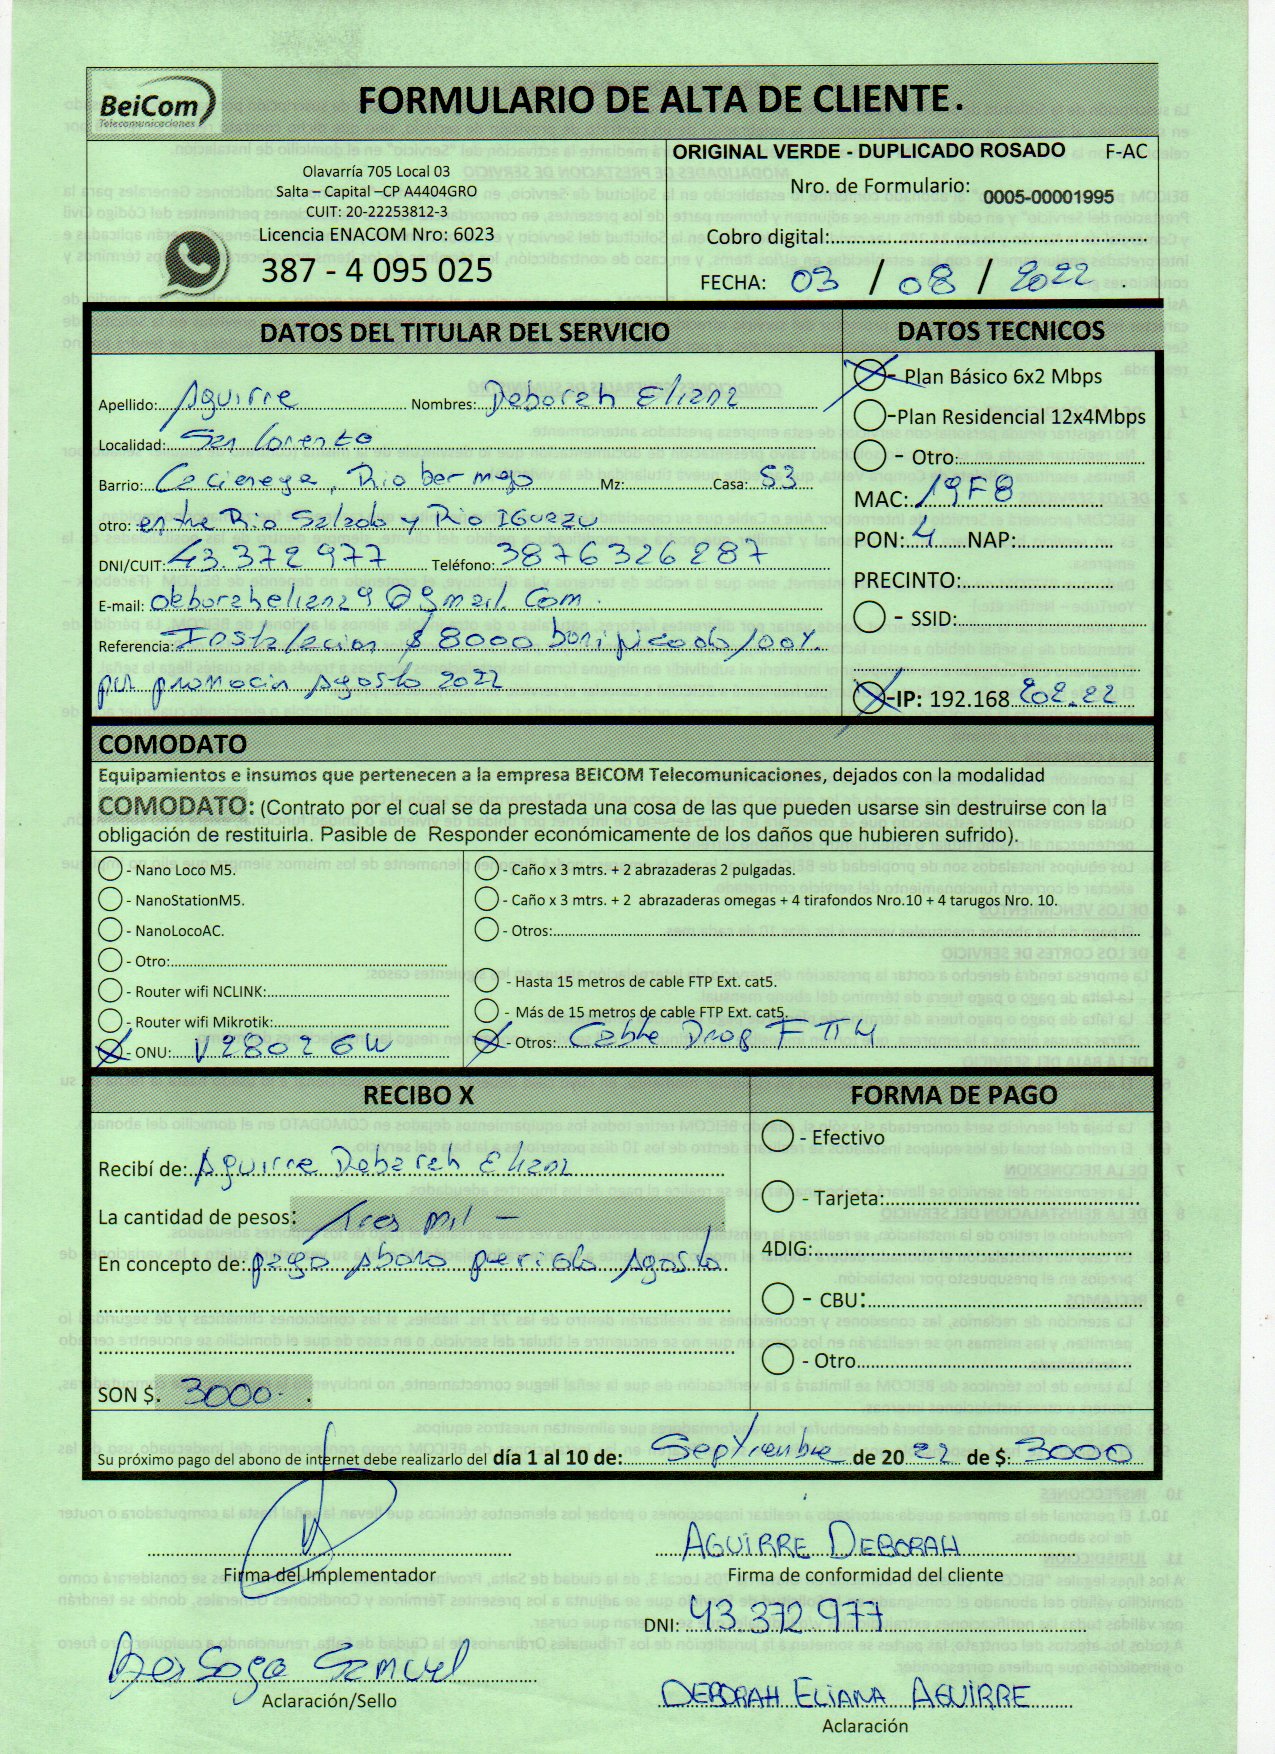 BeiCom
Telecomunicaciones
FORMULARIO DE ALTA DE CLIENTE.
Olavarría 705 Local 03
Salta – Capital –CP A4404GRO
CUIT: 20-22253812-3
Licencia ENACOM Nro: 6023
387 - 4 095 025
ORIGINAL VERDE - DUPLICADO ROSADO F-AC
Nro. de Formulario: 0005-00001995
Cobro digital:
FECHA: 03 / 08 / 2022
DATOS DEL TITULAR DEL SERVICIO
Apellido: Aguirre Nombres: Deborah Eliana
Localidad: San Lorenzo
Barrio: La Cienega, Rio bermejo Mz: Casa: 53
otro: entre Rio Salado y Rio IGuazu
DNI/CUIT: 43.372 977 Teléfono: 3876326287
E-mail: deboraheliana29@gmail.com.
Referencia: Instalacion $ 8000 bonificado 100%.
por promocin Agosto 2022
DATOS TECNICOS
- Plan Básico 6x2 Mbps
-Plan Residencial 12x4Mbps
- Otro:
MAC: 19F8
PON: 4 NAP:
PRECINTO:
- SSID:
-IP: 192.168 202.22
COMODATO
Equipamientos e insumos que pertenecen a la empresa BEICOM Telecomunicaciones, dejados con la modalidad
COMODATO: (Contrato por el cual se da prestada una cosa de las que pueden usarse sin destruirse con la
obligación de restituirla. Pasible de Responder económicamente de los daños que hubieren sufrido).
- Nano Loco M5.
- NanoStationM5.
- NanoLocoAC.
- Otro:
- Router wifi NCLINK:
- Router wifi Mikrotik:
- ONU: V2802GW
- Caño x 3 mtrs. + 2 abrazaderas 2 pulgadas.
- Caño x 3 mtrs. + 2 abrazaderas omegas + 4 tirafondos Nro.10 + 4 tarugos Nro. 10.
- Otros:
- Hasta 15 metros de cable FTP Ext. cat5.
- Más de 15 metros de cable FTP Ext. cat5.
- Otros: Cable Drop FTTH
RECIBO X
Recibí de: Aguirre Deborah Eliana
La cantidad de pesos: Tres mil —
En concepto de: pago Abono periodo Agosto
SON $. 3000.
FORMA DE PAGO
- Efectivo
- Tarjeta:
4DIG:
- CBU:
- Otro
Su próximo pago del abono de internet debe realizarlo del día 1 al 10 de: Septiembre de 20 22 de $: 3000
Firma del Implementador
AGUIRRE DEBORAH
Firma de conformidad del cliente
DNI: 43.372 977
Samuel
Aclaración/Sello
DEBORAH ELIANA AGUIRRE
Aclaración